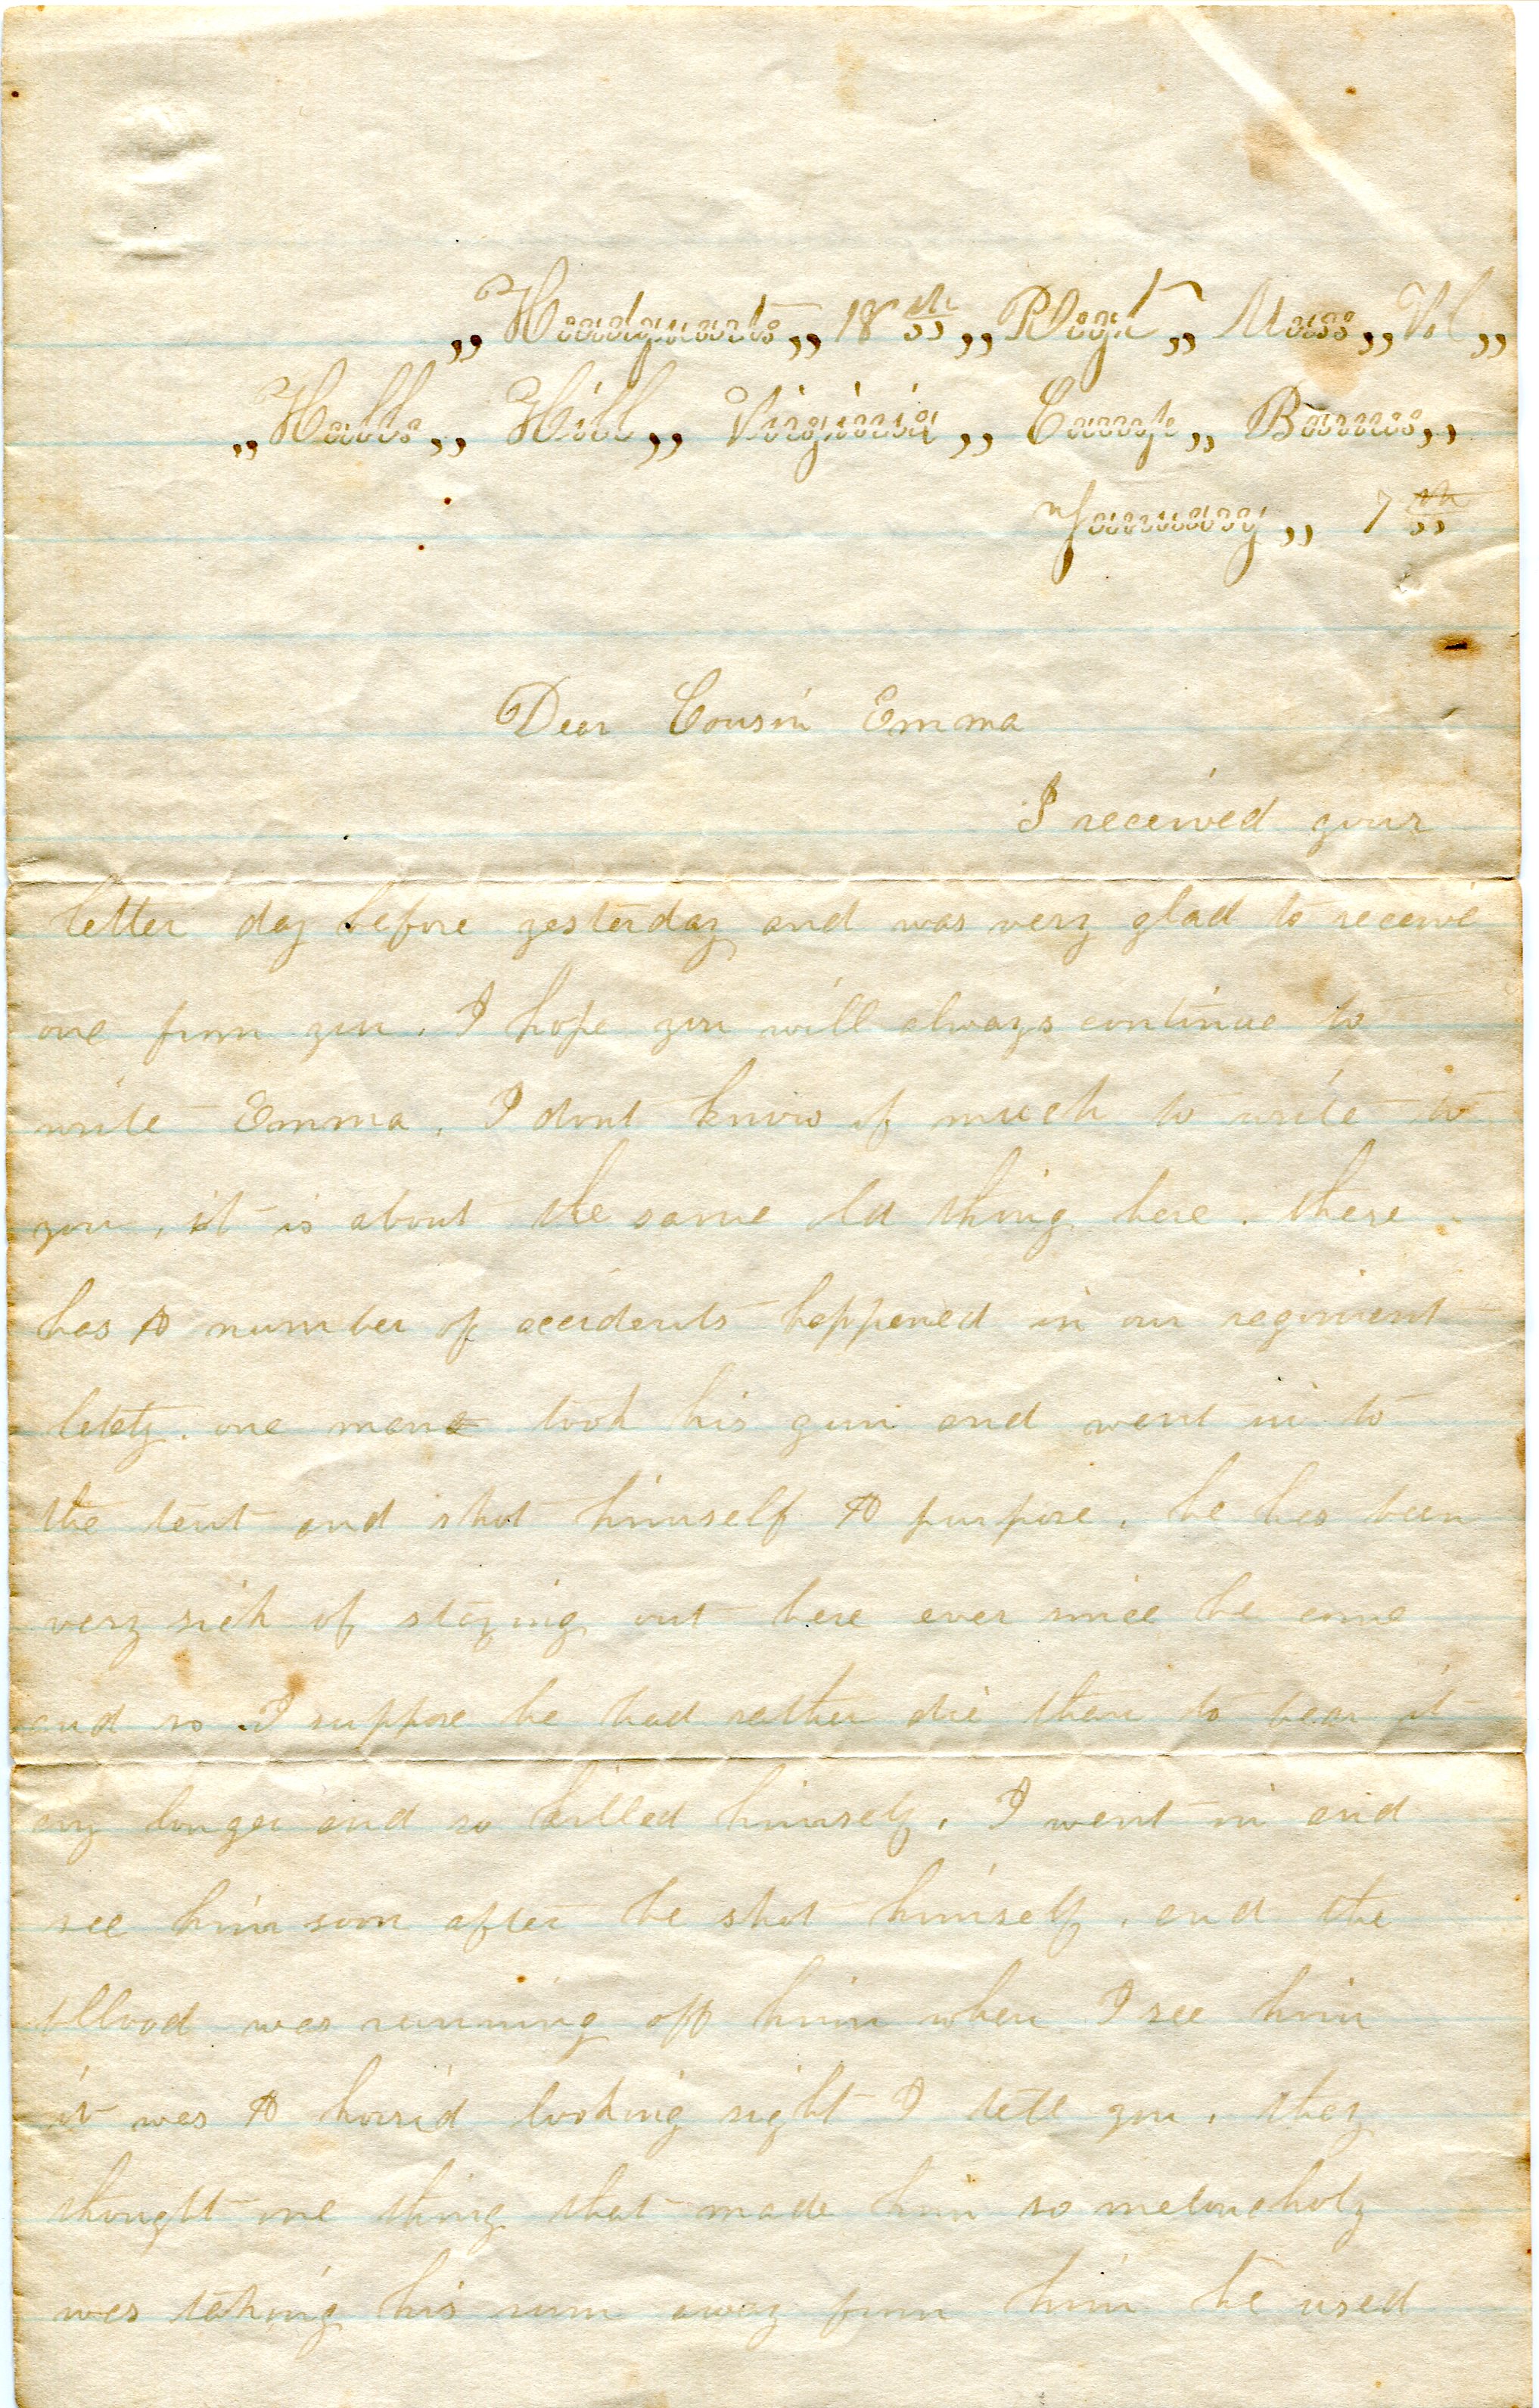 „Headquarts„ 18th „Regt„ Mass„ Vol„
„Halls„ Hill„ Virginia„ Camp„ Barnes„
January„ 7th
Dear Cousin Emma
I received your
letter day before yesterday and was very glad to receive
one from you. I hope you will always continue to
write Emma. I dont know of much to write to
you, it is about the same old thing here. there
has A number of accidents happened in our regiment
lately. one man took his gun and went in to
the tent and shot himself A purpose. he has been
very sick of staying out here ever since he come
and so I suppose he had rather die than to bear it
any longer and so killed himself. I went in and
see him soon after he shot himself. and the
blood was running off him when I see him
it was A horrid looking sight I tell you. they
thought one thing that made him so meloncholy
was taking his rum away from him he used